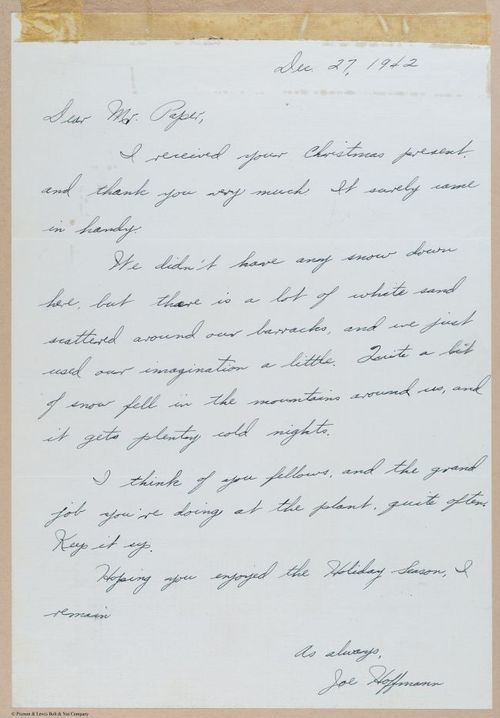 Dec. 27, 1942
Dear Mr. Paper,
I received your Christmas present,
and thank you very much. It surely came
in handy.
We didn't have any snow down
here, but there is a lot of white sand
scattered around our barracks, and we just
used our imagination a little. Quite a bit
of snow fell in the mountains around us, and
it gets plenty cold nights.
I think of you fellows, and the grand
job you're doing at the plant, quite often.
Keep it up.
Hoping you enjoyed the Holiday Season, I
remain
As always,
Joe Hoffmann
© Pheoll & Lewis Bolt & Nut Company